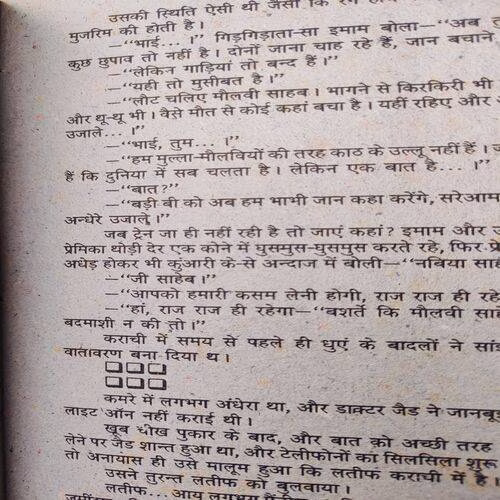 उसकी स्थिति ऐसी थी जैसी कि रंगे
मुजरिम की होती है।
—“भाई... ।” गिड़गिड़ाता-सा इमाम बोला—“अब
कुछ छुपाव तो नहीं है। दोनों जाना चाह रहे हैं, जान बचाने
—“लेकिन गाड़ियां तो बन्द हैं।”
—“यही तो मुसीबत है।”
—“लौट चलिए मौलवी साहब। भागने से किरकिरी भी
और थू-थू भी। वैसे मौत से कोई कहां बचा है। यहीं रहिए और
उजाले... ।”
—“भाई, तुम... ।”
—“हम मुल्ला-मौलवियों की तरह काठ के उल्लू नहीं हैं।
हैं कि दुनिया में सब चलता है। लेकिन एक बात है... ।”
—“बात?”
—“बड़ी बी को अब हम भाभी जान कहा करेंगे, सरेआम
अन्धेरे उजाले।”
जब ट्रेन जा ही नहीं रही है तो जाएं कहां? इमाम और
प्रेमिका थोड़ी देर एक कोने में घुसमुस-घुसमुस करते रहे, फिर
अधेड़ होकर भी कुंआरी के-से अन्दाज में बोली—“नबिया
—“जी साहेब।”
—“आपको हमारी कसम लेनी होगी, राज राज ही
—“हां, राज राज ही रहेगा—“बशर्ते कि मौलवी
बदमाशी न की तो।”
कराची में समय से पहले ही धुएं के बादलों ने
वातावरण बना दिया थ।
कमरे में लगभग अंधेरा था, और डाक्टर जैड ने
लाइट ऑन नहीं कराई थी।
खूब धीख पुकार के बाद, और बात क़ो अच्छी तरह
लेने पर जैड शान्त हुआ था, और टेलीफोनों का सिलसिला शुरू
तो अनायास ही उसे मालूम हुआ कि लतीफ कराची में है
उसने तुरन्त लतीफ को बुलवाया।
लतीफ... आय लगभग